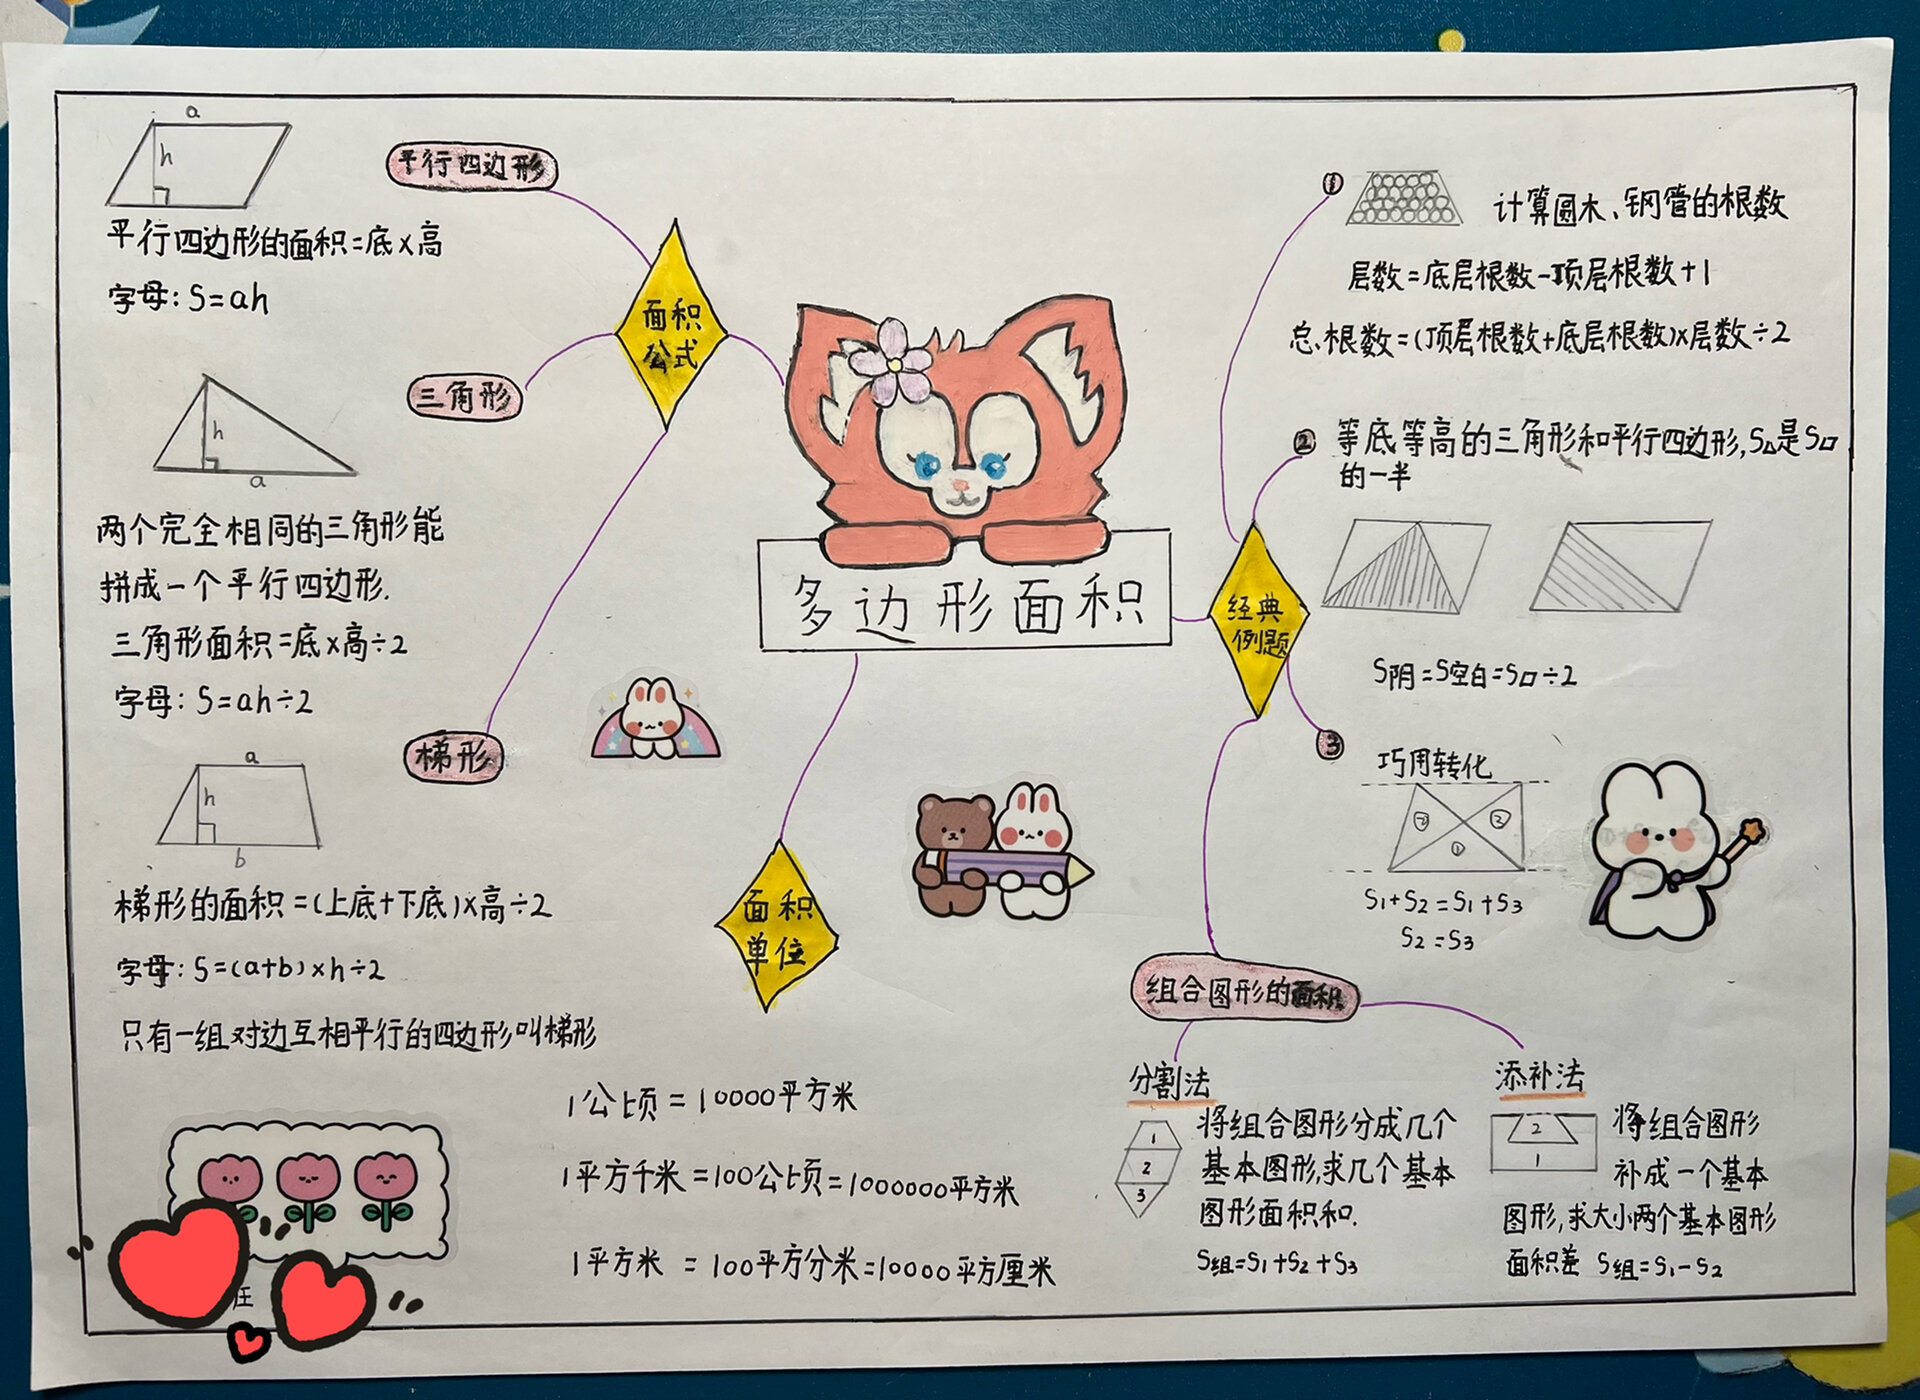 多边形面积
面积
公式
平行四边形
a
h
平行四边形的面积=底×高
字母:S=ah
三角形
h
a
两个完全相同的三角形能
拼成一个平行四边形.
三角形面积=底×高÷2
字母:S=ah÷2
梯形
a
h
b
梯形的面积=(上底+下底)×高÷2
字母:S=(a+b)×h÷2
只有一组对边互相平行的四边形叫梯形
面积
单位
1公顷=10000平方米
1平方千米=100公顷=1000000平方米
1平方米=100平方分米=10000平方厘米
经典
例题
①
计算圆木、钢管的根数
层数=底层根数-顶层根数+1
总根数=(顶层根数+底层根数)×层数÷2
②
等底等高的三角形和平行四边形,S△是S▱
的一半
S阴=S空白=S▱÷2
③
巧用转化
② ③
①
S1+S2=S1+S3
S2=S3
组合图形的面积
分割法
1
2
3
将组合图形分成几个
基本图形,求几个基本
图形面积和.
S组=S1+S2+S3
添补法
2
1
将组合图形
补成一个基本
图形,求大小两个基本图形
面积差 S组=S1-S2